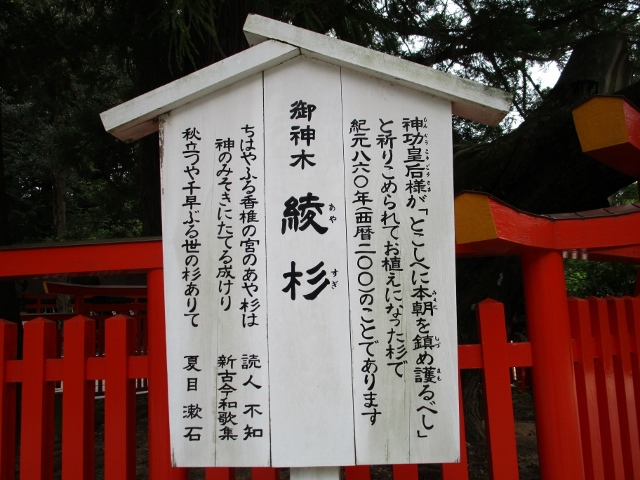 御神木
綾杉
あや
すぎ
神功皇后様が「とこしへに本朝を鎮め護るべし」
と祈りこめられてお植えになった杉で
紀元八六〇年(西暦二〇〇)のことであります
ちはやふる香椎の宮のあや杉は
神のみそきにたてる成けり
読人不知
新古今和歌集
秋立つや千早ぶる世の杉ありて
夏目漱石